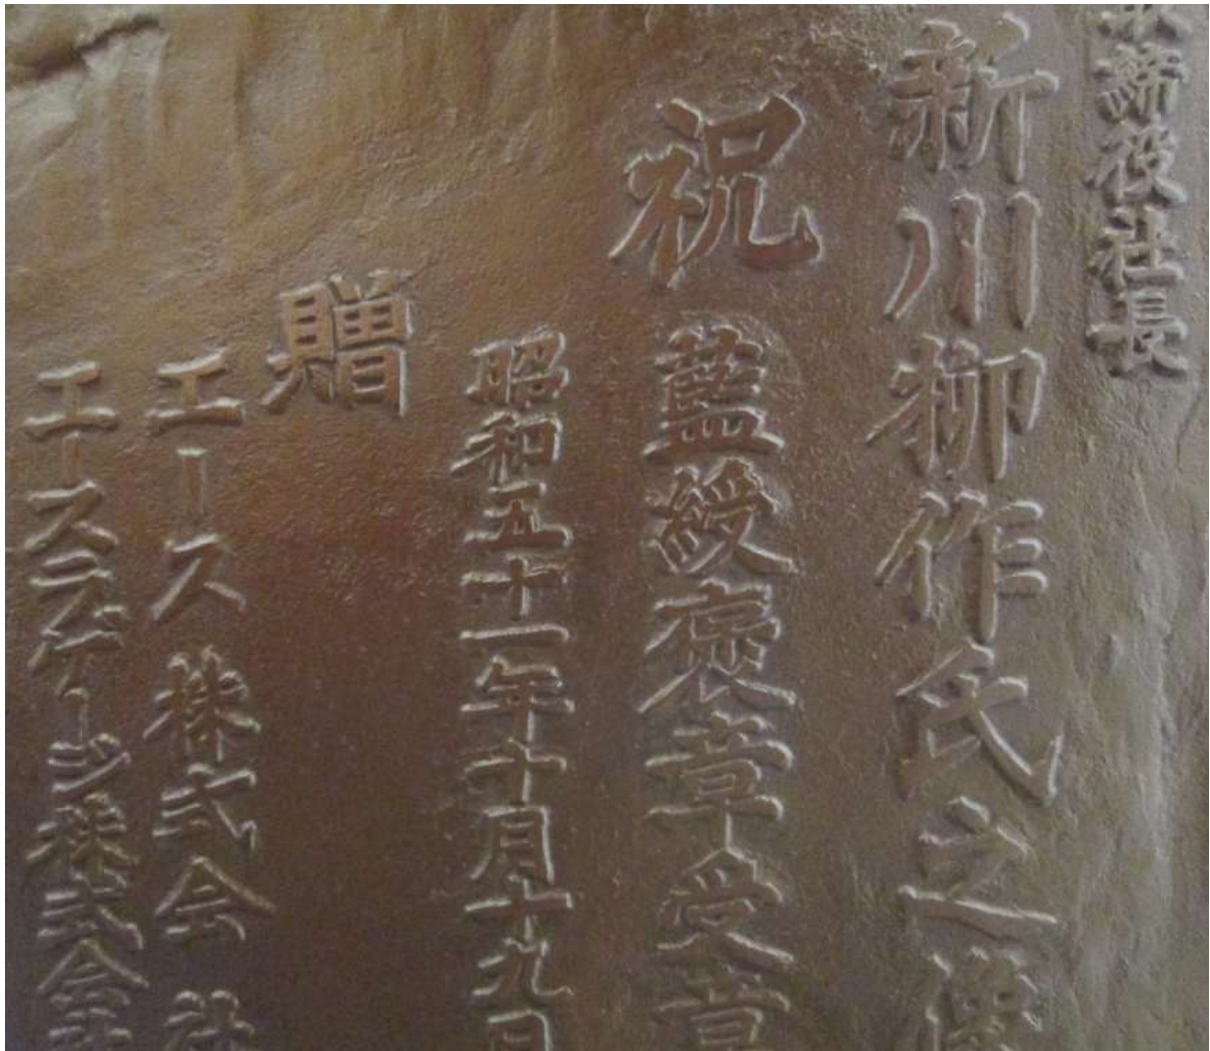 取締役社長
新川柳作氏之像
祝 藍綬褒章受章
昭和五十一年十月十九日
贈
エース株式会社
エースラゲージ株式会社